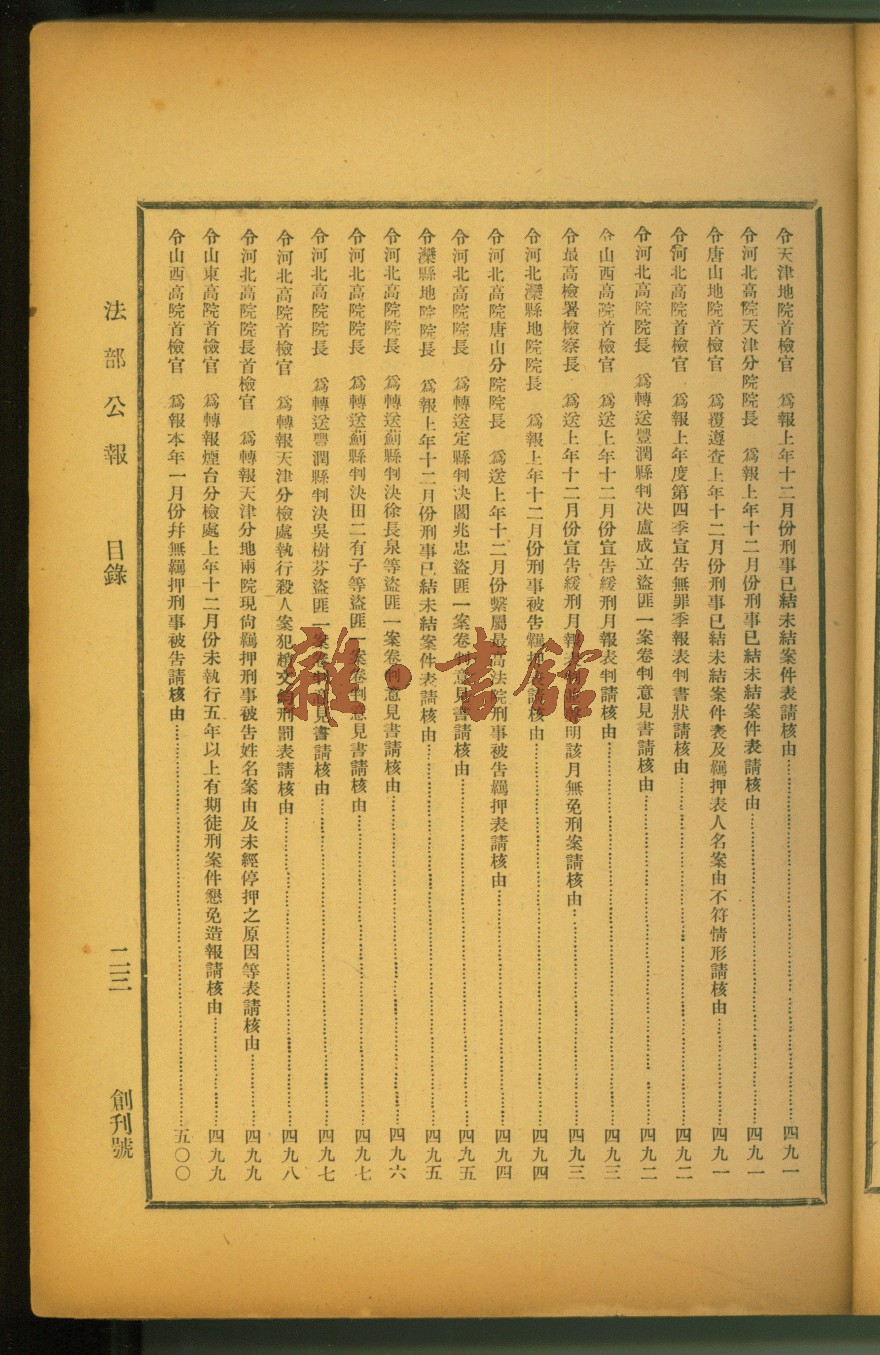 令天津地院首檢官　爲報上年十二月份刑事已結未結案件表請核由……四九一
令河北高院天津分院院長　爲報上年十二月份刑事已結未結案件表請核由……四九一
令唐山地院首檢官　爲覆遵查上年十二月份刑事已結未結案件表及羈押表人名案由不符情形請核由……四九一
令河北高院首檢官　爲報上年度第四季宣告無罪季報表判書狀請核由……四九二
令河北高院院長　爲轉送豐潤縣判決盧成立盜匪一案卷判意見書請核由……四九二
令山西高院首檢官　爲送上年十二月份宣告緩刑月報表判請核由……四九三
令最高檢署檢察長　爲送上年十二月份宣告緩刑月報表判並聲明該月無免刑案請核由……四九三
令河北灤縣地院院長　爲報上年十二月份刑事被告羈押表請核由……四九四
令河北高院唐山分院院長　爲送上年十二月份繫屬最高法院刑事被告羈押表請核由……四九四
令河北高院院長　爲轉送定縣判決閻兆忠盜匪一案卷判意見書請核由……四九五
令灤縣地院院長　爲報上年十二月份刑事已結未結案件表請核由……四九五
令河北高院院長　爲轉送薊縣判決徐長泉等盜匪一案卷判意見書請核由……四九六
令河北高院院長　爲轉送薊縣判決田二有子等盜匪一案卷判意見書請核由……四九七
令河北高院院長　爲轉送豐潤縣判決吳樹芬盜匪一案卷判意見書請核由……四九七
令河北高院首檢官　爲轉報天津分檢處執行殺人案犯趙文刑罰表請核由……四九八
令河北高院院長首檢官　爲轉報天津分地兩院現尙羈押刑事被告姓名案由及未經停押之原因等表請核由……四九九
令山東高院首檢官　爲轉報煙台分檢處上年十二月份未執行五年以上有期徒刑案件懇免造報請核由……四九九
令山西高院首檢官　爲報本年一月份幷無羈押刑事被告請核由……五〇〇
法部公報　目錄　二三　創刊號
雜·書館